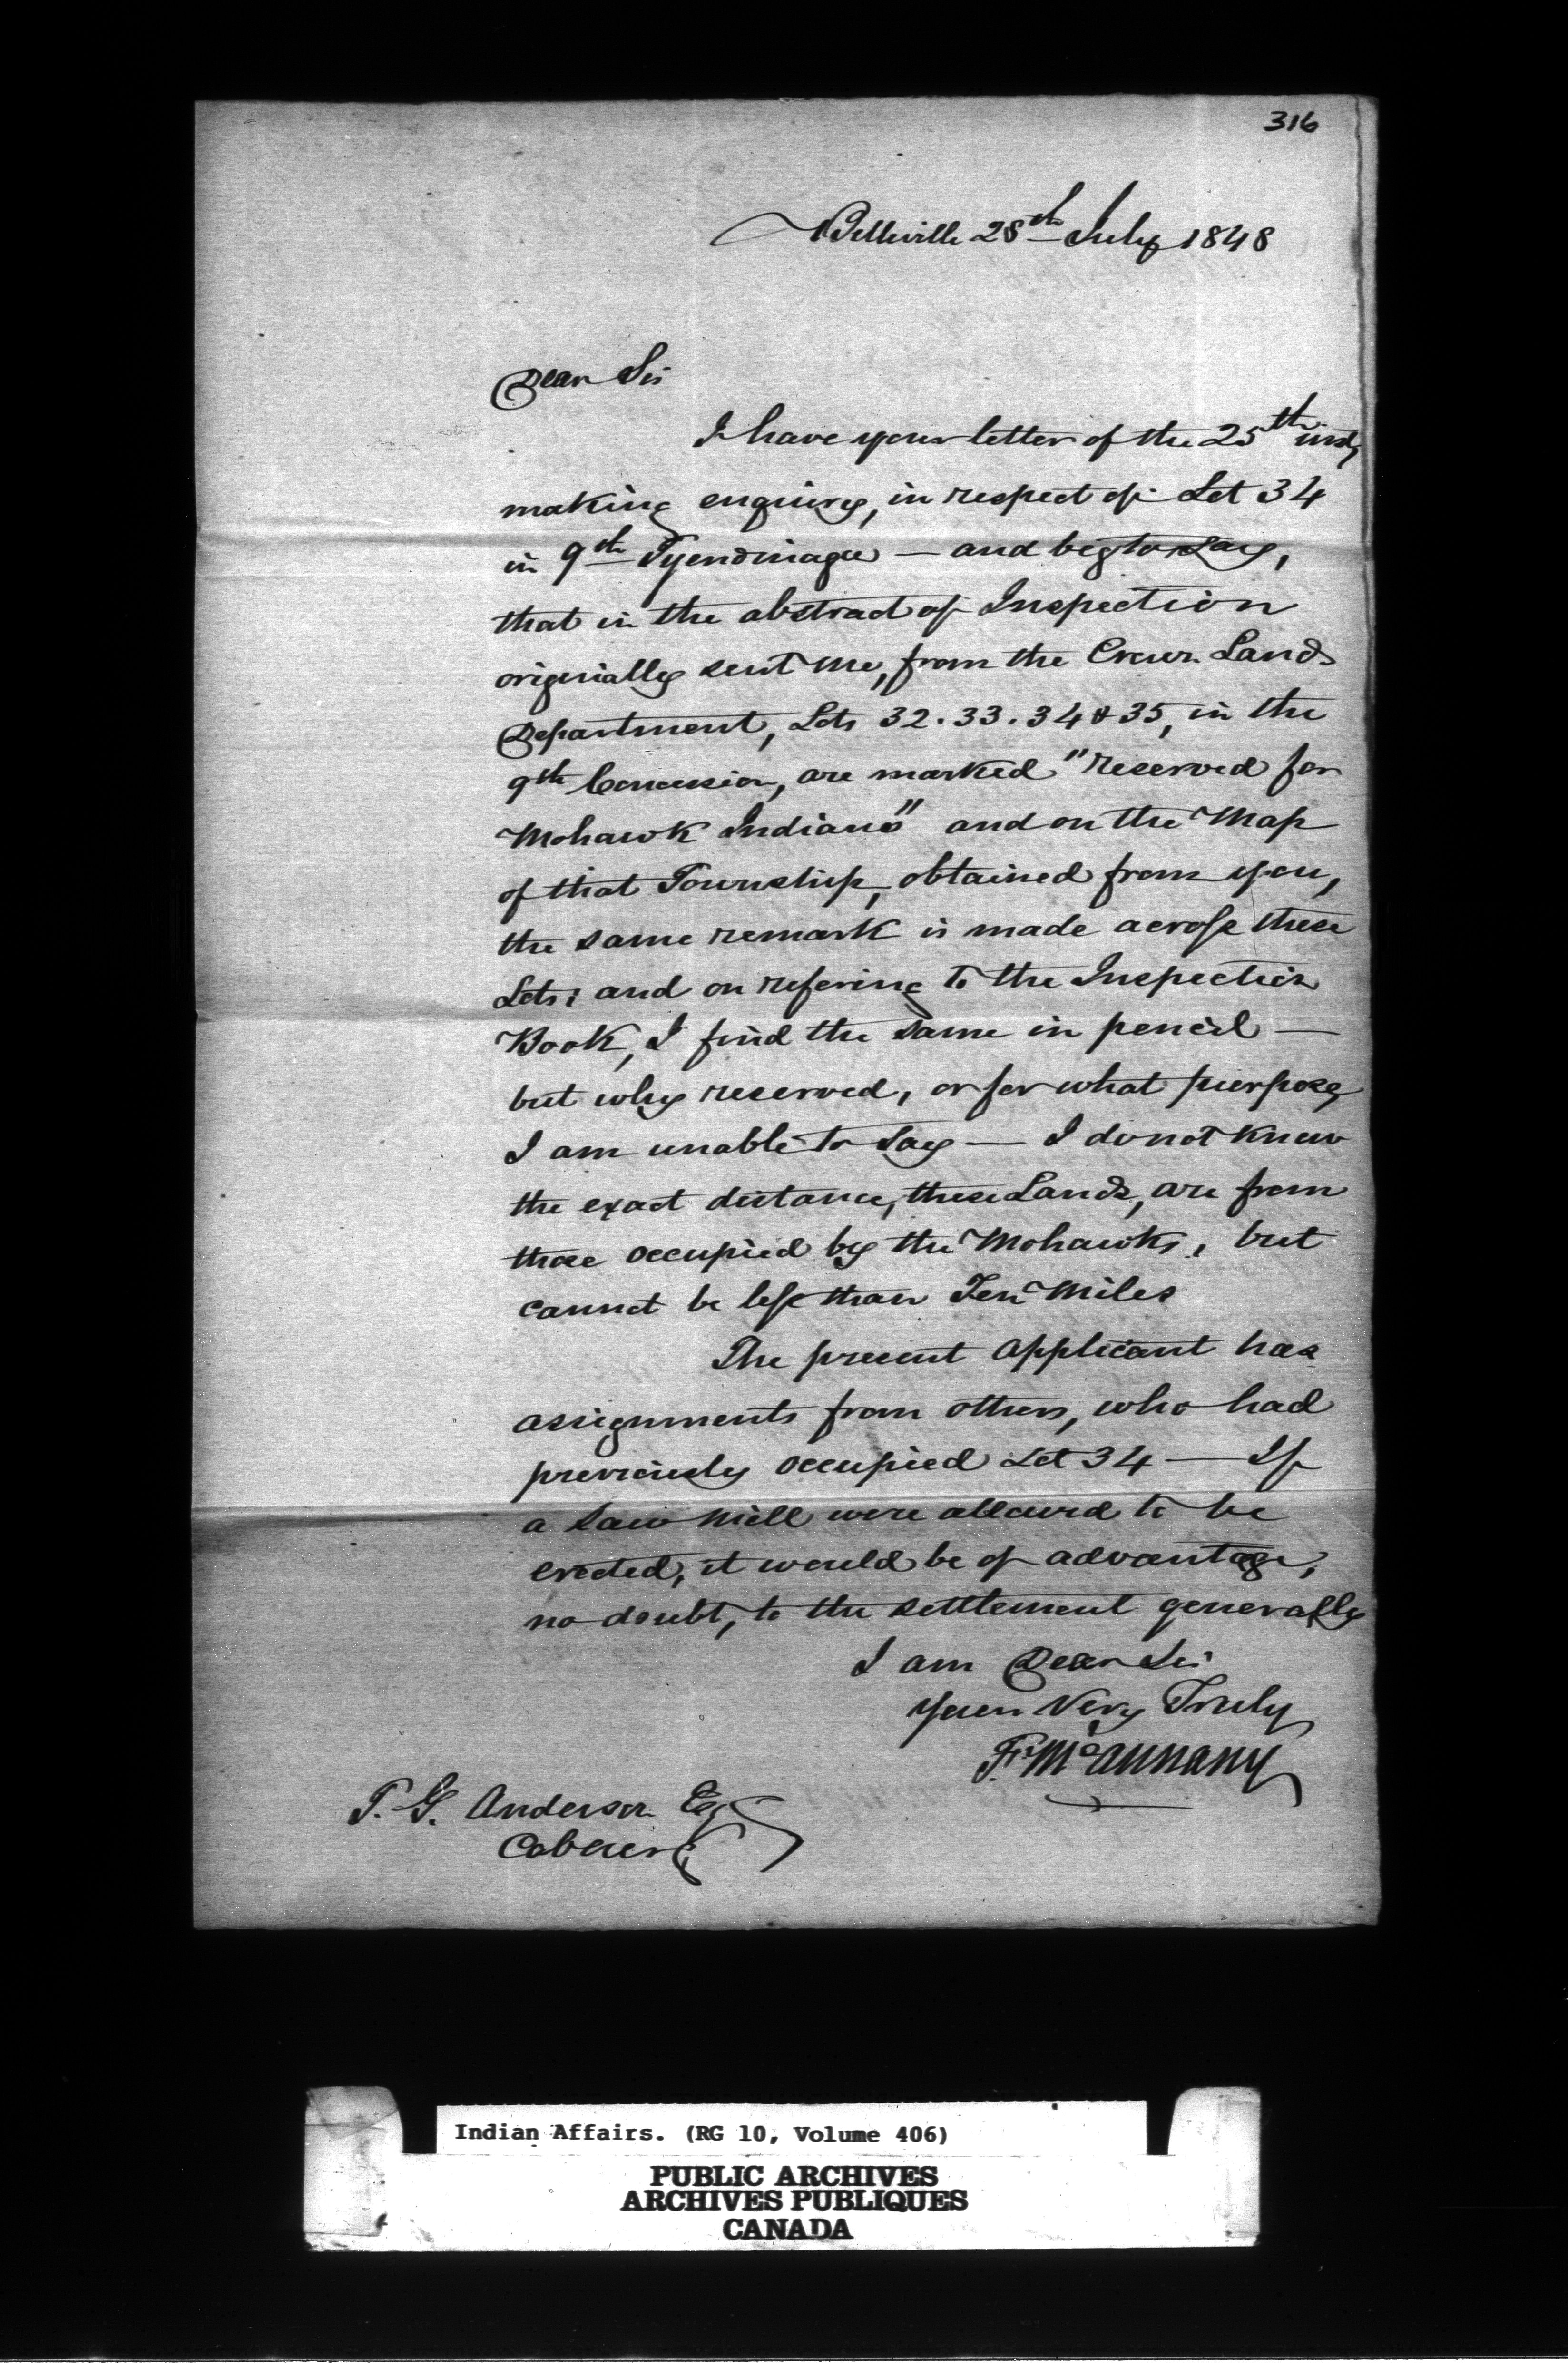 316
Belleville 28th July 1848
Dear Sir
I have your letter of the 25th inst,
making enquiry, in respect of Lot 34
in 9th Tyendinaga — and beg to say,
that in the abstract of Inspection
originally sent me, from the Crown Lands
Department, Lots 32. 33. 34 & 35, in the
9th Concession, are marked "reserved for
Mohawk Indians" and on the Map
of that Township, obtained from you,
the same remark is made across these
Lots; and on refering to the Inspection
Book, I find the same in pencil —
but why reserved, or for what purpose,
I am unable to say — I do not know
the exact distance, these Lands, are from
those occupied by the Mohawks, but
cannot be less than Ten Miles
The present applicant has
assignments from others, who had
previously occupied Lot 34 — If
a saw mill were allowed to be
erected, it would be of advantage,
no doubt, to the settlement generally
I am Dear Sir
Your Very Truly
Fs. McAnnany
T. G. Anderson Esq
Cobourg
Indian Affairs. (RG 10, Volume 406)
PUBLIC ARCHIVES
ARCHIVES PUBLIQUES
CANADA